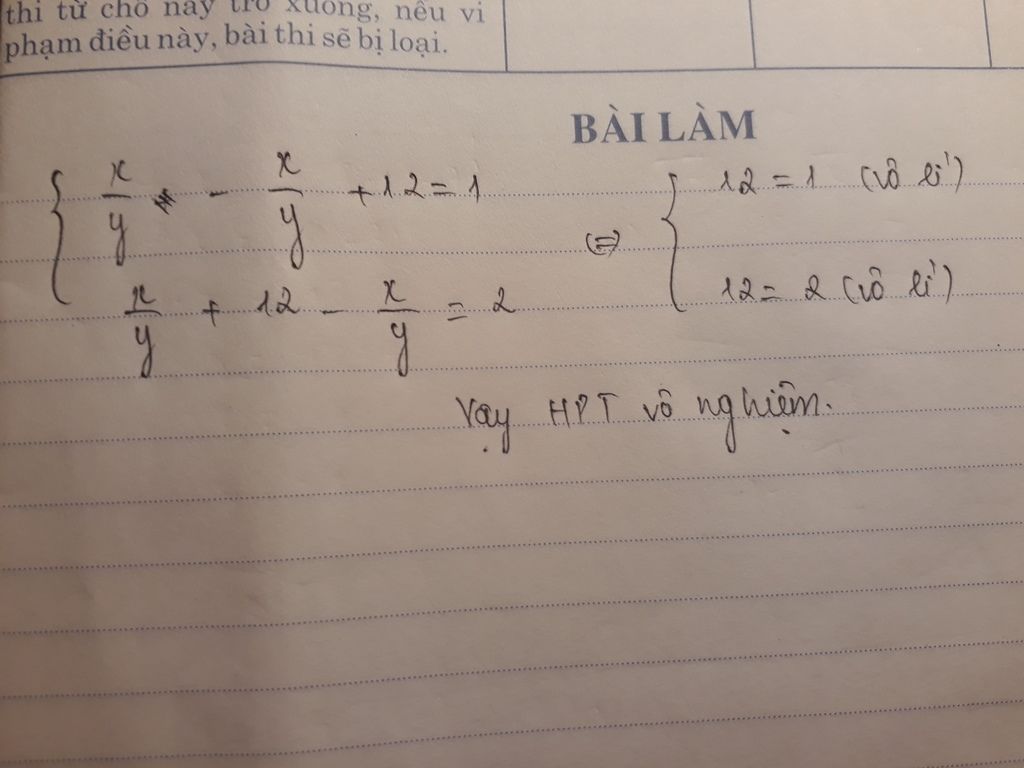 thi từ chỗ này trở xuống, nếu vi
phạm điều này, bài thi sẽ bị loại.
BÀI LÀM
{ x/y - x/y + 12 = 1 (=) { 12 = 1 (vô lí)
x/y + 12 - x/y = 2 12 = 2 (vô lí)
Vạy HPT vô nghiệm.